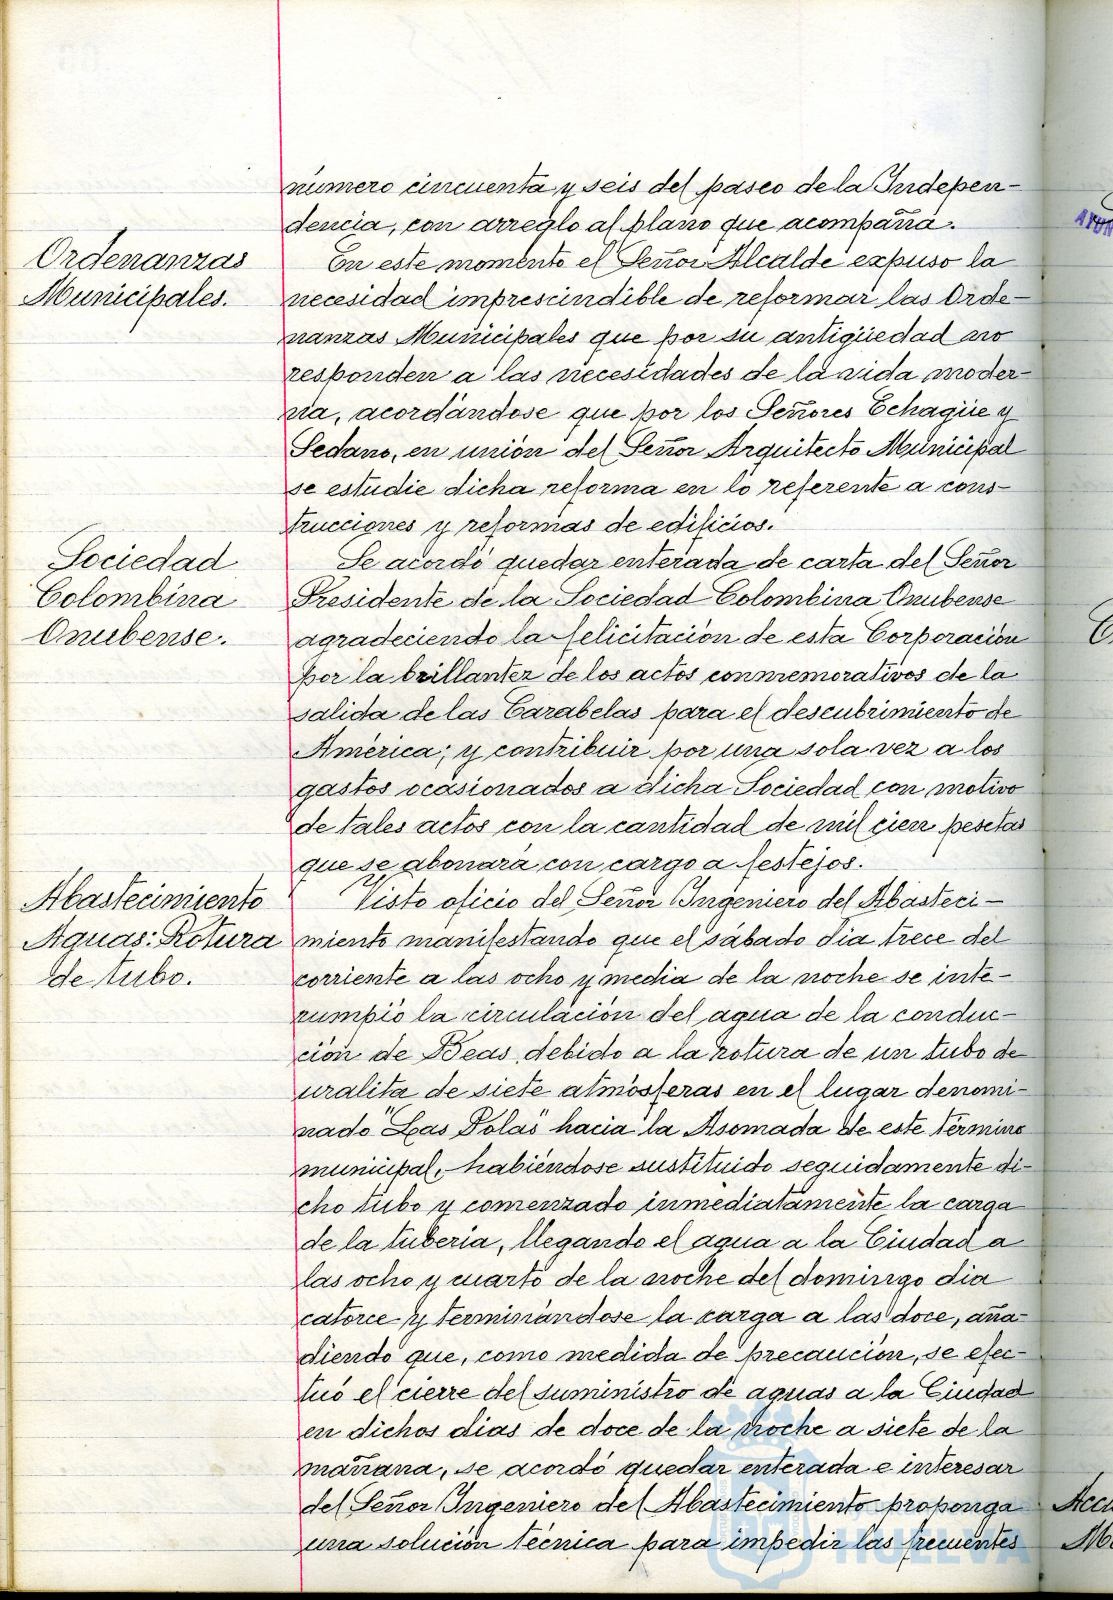 número cincuenta y seis del paseo de la Indepen-
dencia, con arreglo al plano que acompaña.
Ordenanzas
Municipales.
En este momento el Señor Alcalde expuso la
necesidad imprescindible de reformar las Orde-
nanzas Municipales que por su antigüedad no
responden a las necesidades de la vida moder-
na, acordándose que por los Señores Echagüe y
Sedano, en unión del Señor Arquitecto Municipal
se estudie dicha reforma en lo referente a cons-
trucciones y reformas de edificios.
Sociedad
Colombina
Onubense.
Se acordó quedar enterada de carta del Señor
Presidente de la Sociedad Colombina Onubense
agradeciendo la felicitación de esta Corporación
por la brillantez de los actos conmemorativos de la
salida de las Carabelas para el descubrimiento de
América; y contribuir por una sola vez a los
gastos ocasionados a dicha Sociedad con motivo
de tales actos con la cantidad de mil cien pesetas
que se abonará con cargo a festejos.
Abastecimiento
Aguas: Rotura
de tubo.
Visto oficio del Señor Ingeniero del Abasteci-
miento manifestando que el sábado dia trece del
corriente a las ocho y media de la noche se inte-
rumpió la circulación del agua de la conduc-
ción de Beas, debido a la rotura de un tubo de
uralita de siete atmósferas en el lugar denomi-
nado "Las Polas" hacia la Asomada de este término
municipal, habiéndose sustituido seguidamente di-
cho tubo y comenzado inmediatamente la carga
de la tuberia, llegando el agua a la Ciudad a
las ocho y cuarto de la noche del domingo dia
catorce y terminándose la carga a las doce, aña-
diendo que, como medida de precaución, se efec-
tuó el cierre del suministro de aguas a la Ciudad
en dichos dias de doce de la noche a siete de la
mañana, se acordó quedar enterada e interesar
del Señor Ingeniero del Abastecimiento proponga
una solución técnica para impedir las frecuentes
HUELVA